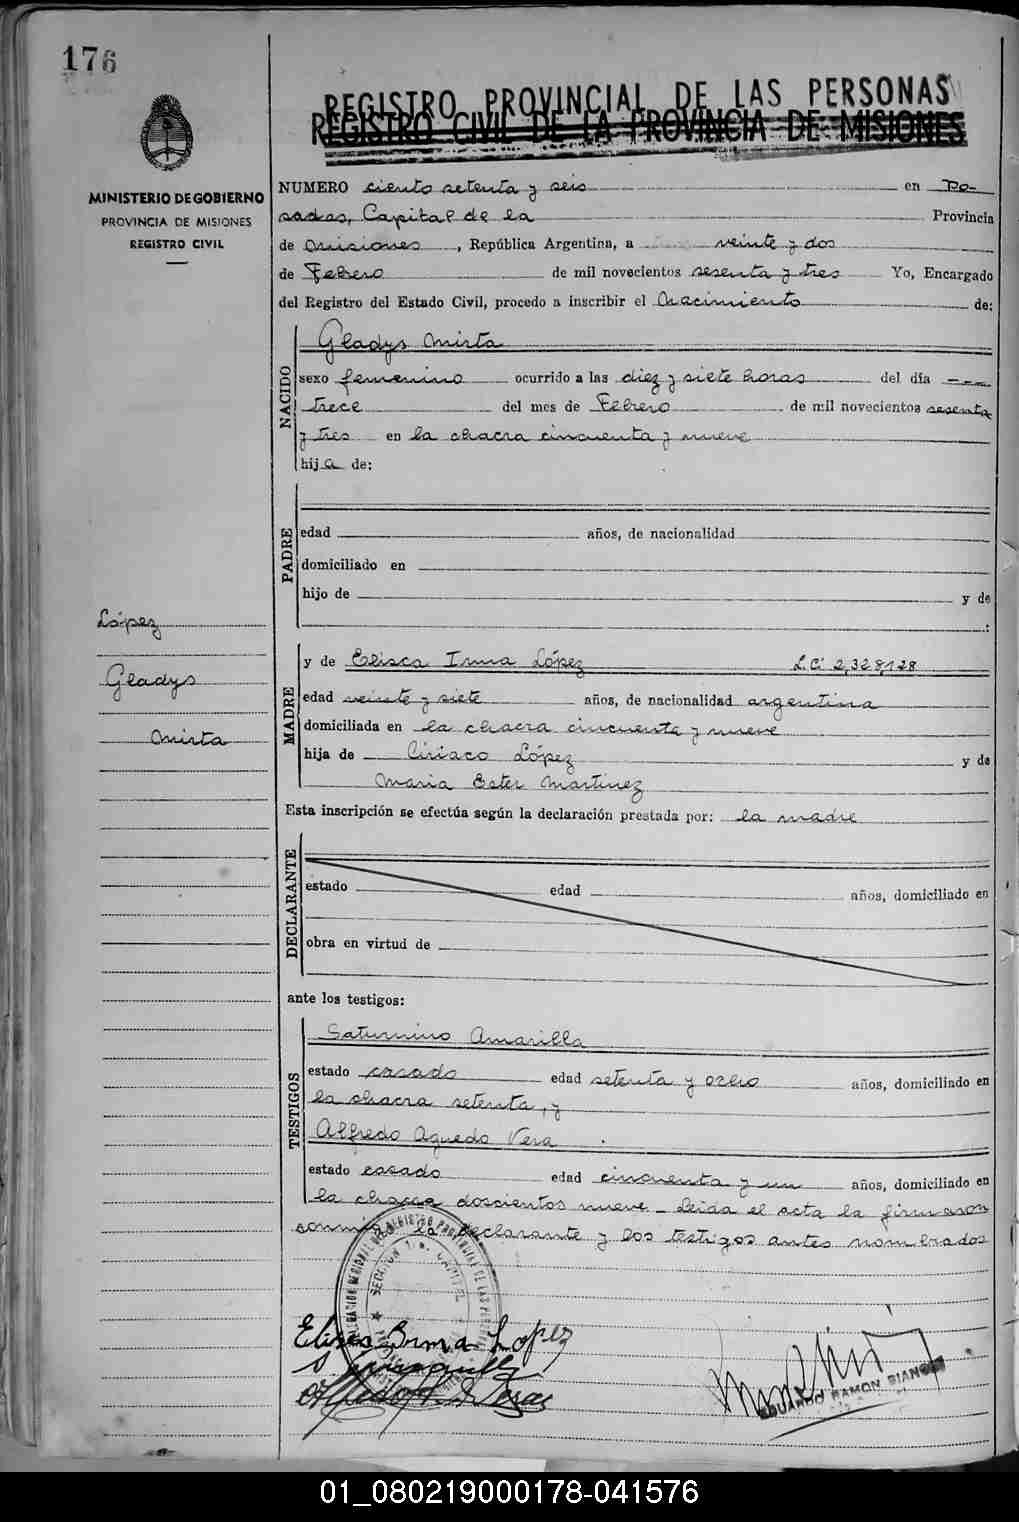 176
REGISTRO PROVINCIAL DE LAS PERSONAS
REGISTRO CIVIL DE LA PROVINCIA DE MISIONES
MINISTERIO DE GOBIERNO
PROVINCIA DE MISIONES
REGISTRO CIVIL
NUMERO ciento setenta y seis en Po-
sadas, Capital de la Provincia
de Misiones, República Argentina, a veinte y dos
de Febrero de mil novecientos sesenta y tres Yo, Encargado
del Registro del Estado Civil, procedo a inscribir el Nacimiento de:
NACIDO
Gladys Mirta
sexo femenino ocurrido a las diez y siete horas del día ---
trece del mes de Febrero de mil novecientos sesenta
y tres en la chacra cincuenta y nueve
hija de:
PADRE
edad años, de nacionalidad
domiciliado en
hijo de y de
:
López
Gladys
Mirta
MADRE
y de Elisea Irma López L.C. 2,328,128
edad veinte y siete años, de nacionalidad argentina
domiciliada en la chacra cincuenta y nueve
hija de Ciriaco López y de
Maria Ester Martinez
Esta inscripción se efectúa según la declaración prestada por: la madre
DECLARANTE
estado edad años, domiciliado en
obra en virtud de
ante los testigos:
TESTIGOS
Saturnino Amarilla
estado casado edad setenta y ocho años, domiciliado en
la chacra setenta, y
Alfredo Aguedo Vera
estado casado edad cincuenta y un años, domiciliado en
la chacra doscientos nueve - Leida el acta la firmaron
conmigo la declarante y los testigos antes nombrados
Irma Lopez
EDUARDO RAMON BIANCHI
01_080219000178-041576